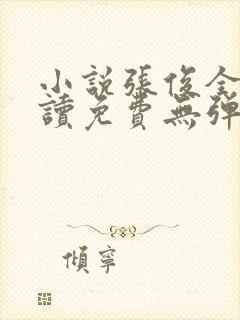 小說張俊全
讀免費無彈
傾寧